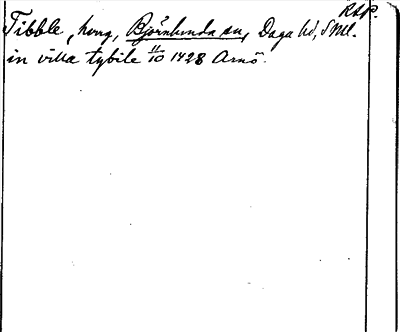 RAP.
Tibble, hmg, Björnlunda sn, Daga hd, Sml.
in villa tybile 11/10 1428 Arnö.